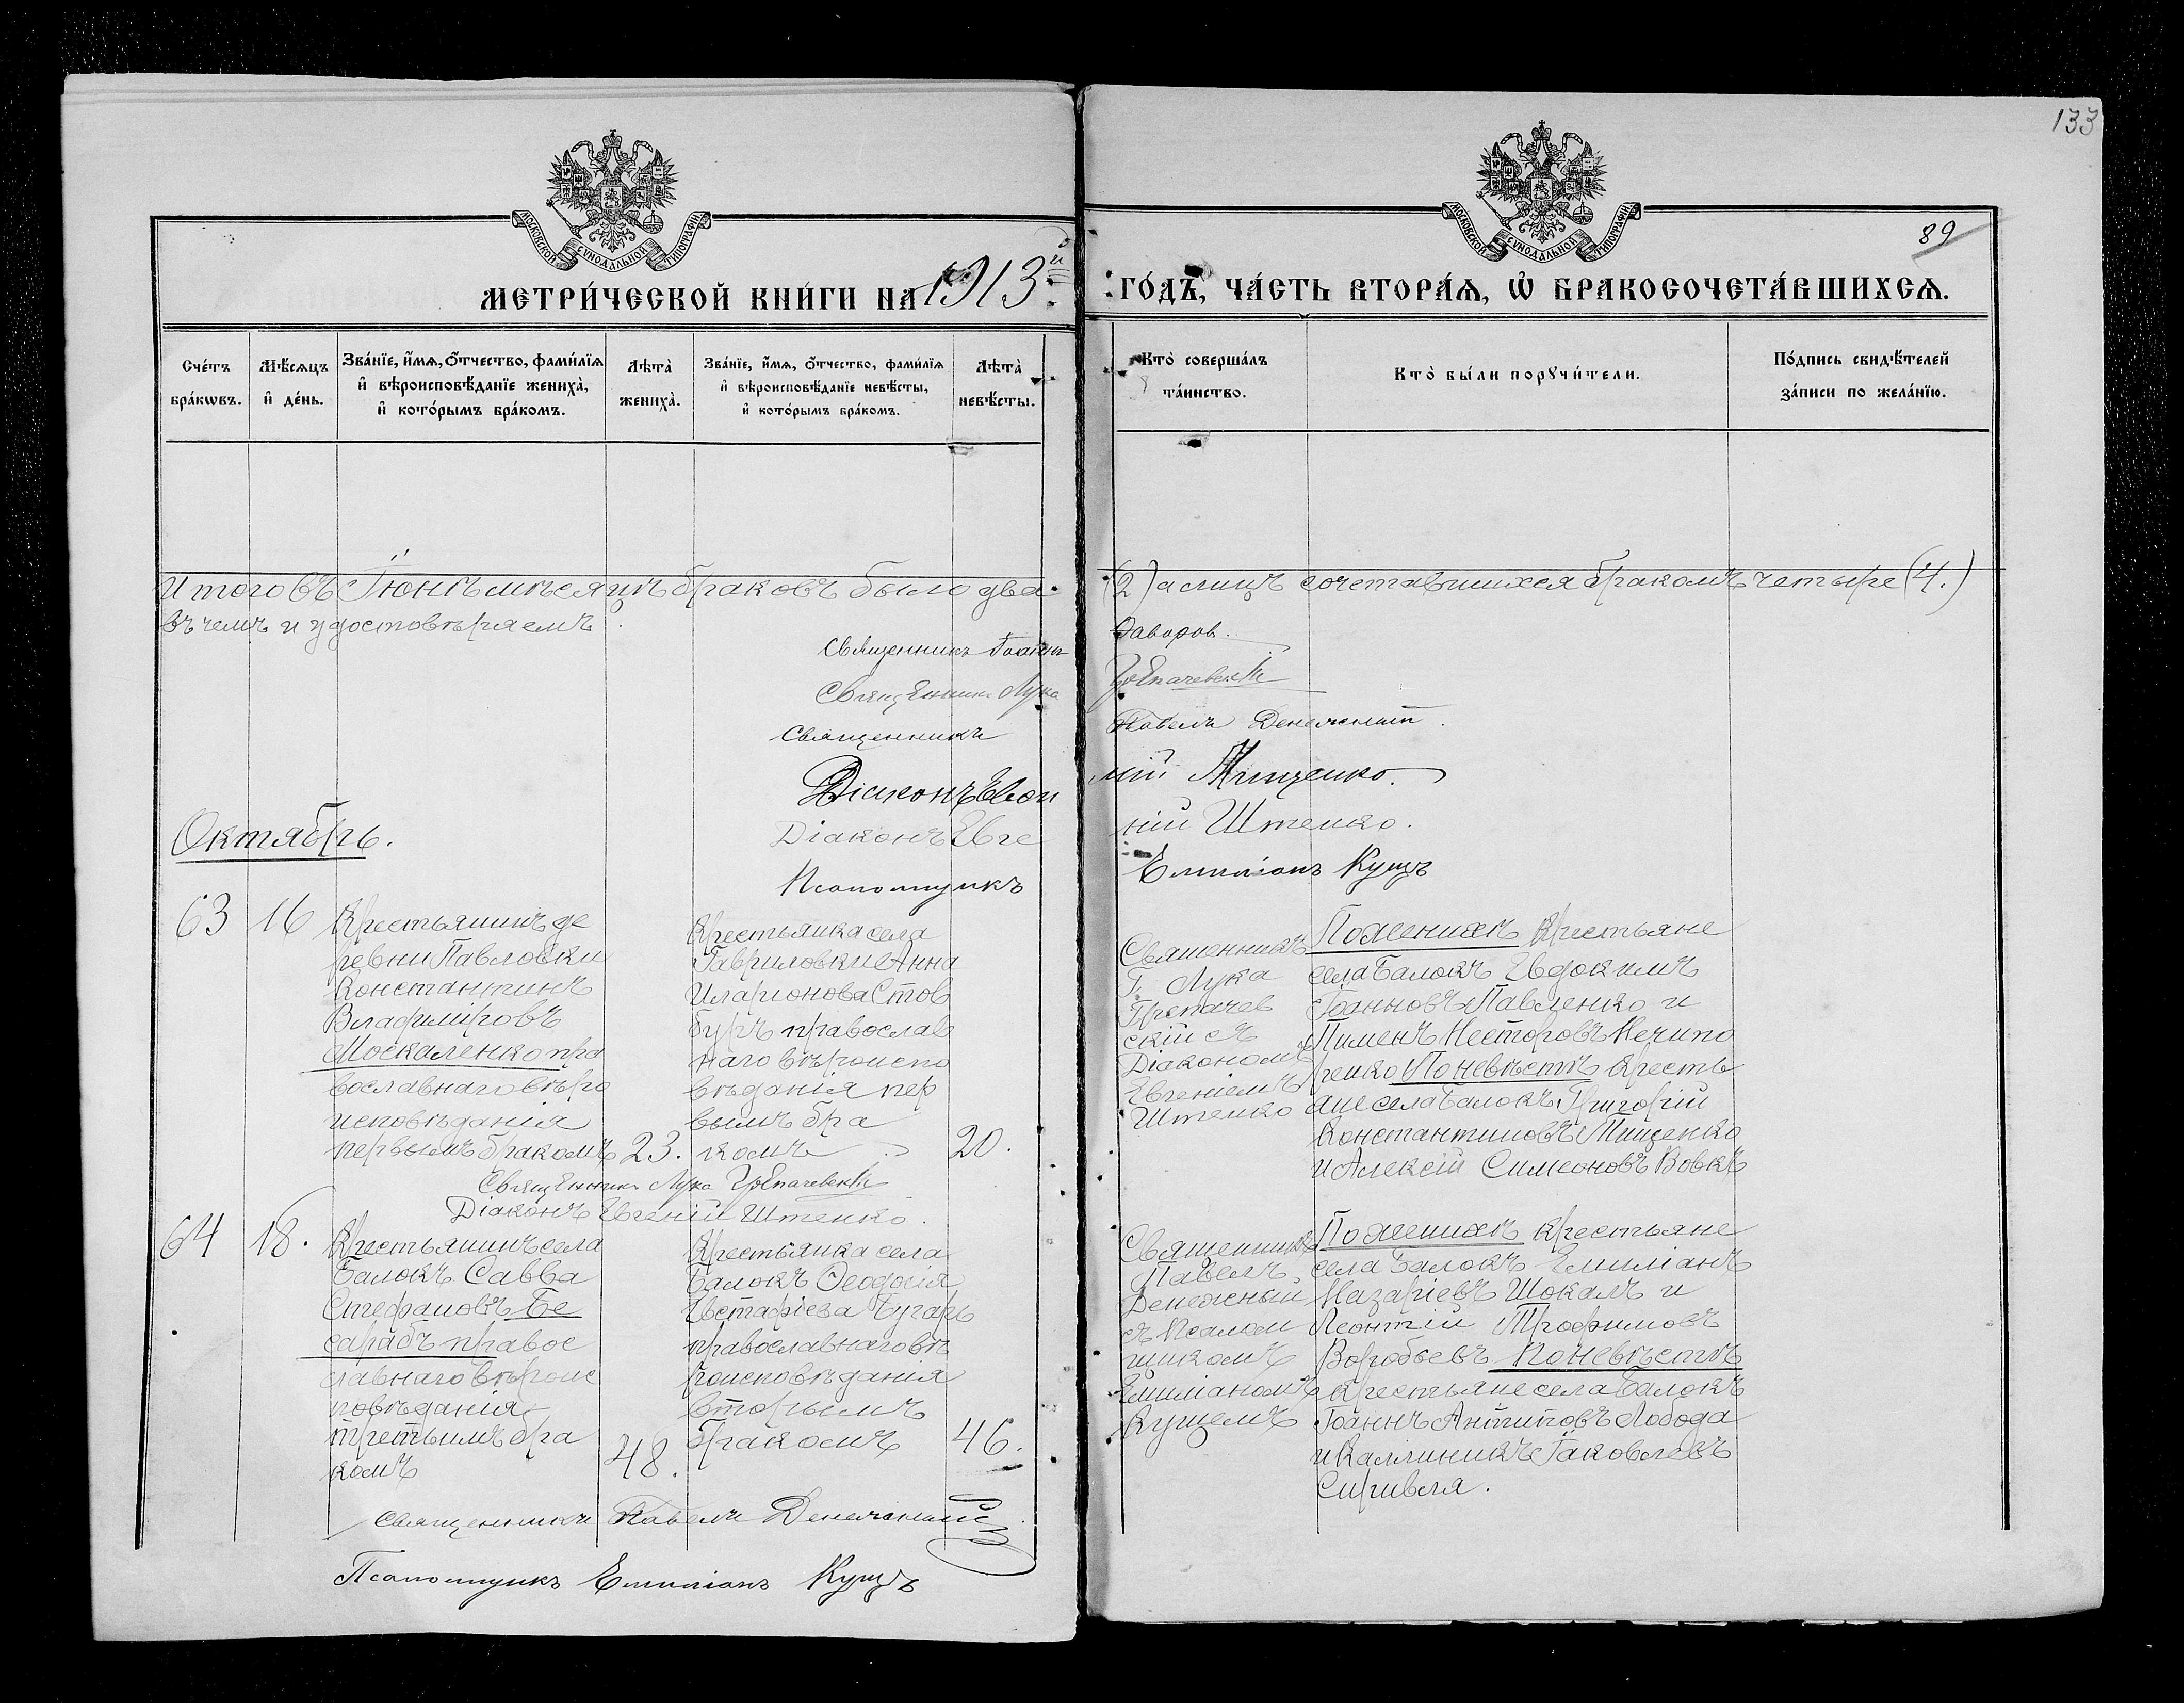 133
МОСКОВСКОЙ СѴНОДАЛЬНОЙ ТИПОГРАФІИ
МОСКОВСКОЙ СѴНОДАЛЬНОЙ ТИПОГРАФІИ
89
МЕТРИ́ЧЕСКОЙ КНИ́ГИ НА 1913й
ГО́ДЪ, ЧА́СТЬ ВТОРА́Ѧ, Ѡ҆ БРАКОСОЧЕТА́ВШИХСѦ.
Сче́тъ бра́кωвъ.
Мѣ́сѧцъ и҆ де́нь.
Зва́нїе, и҆́мѧ, ѻ҆́тчество, фами́лїѧ и҆ вѣроисповѣ́данїе жениха̀, и҆ кото́рымъ бра́комъ.
Лѣта̀ жениха̀.
Зва́нїе, и҆́мѧ, ѻ҆́тчество, фами́лїѧ и҆ вѣроисповѣ́данїе невѣ́сты, и҆ кото́рымъ бра́комъ.
Лѣта̀ невѣ́сты.
Кто̀ соверша́лъ та́инство.
Кто̀ бы́ли порꙋчи́тели.
По́дпись свидѣ́телей за́писи по жела́нїю.
Итого въ Іюнѣ мѣсяцѣ браковъ было два (2) а лицъ сочетавшихся бракомъ четыре (4.)
въ чемъ и удостовѣряемъ.
Священникъ Іоаннъ Фаворов.
Священникъ Лука
Священникъ Павелъ Денежный.
Діаконъ Евфимій Мищенко.
Діаконъ Евгеній Штепко.
Псаломщикъ Емиліанъ Кущъ
Октябрь.
63
16
Крестьянинъ де
ревни Павловки
Константинъ
Владиміровъ
Москаленко пра
вославнаго вѣро
исповѣданія
первымъ бракомъ
23.
Крестьянка села
Гавриловки Анна
Иларионова Стов
буръ православ
наго вѣроиспо
вѣданія пер
вымъ бра
комъ
20.
Священникъ
Г. Лука
Трепачев
скій съ
Діакономъ
Евгеніемъ
Штепко
По женихѣ Крестьяне
села Балокъ Евдокимъ
Іоанновъ Павленко и
Пименъ Несторовъ Нечипо
ренко По невѣстѣ Кресть
яне села Балокъ Григорій
Константиновъ Тищенко
и Алексій Симеоновъ Вовкъ
Священникъ Лука
Діаконъ Евгеній Штепко.
64
18.
Крестьянинъ села
Балокъ Савва
Стефановъ Бе
сарабъ правос
лавнаго вѣроис
повѣданія
третьимъ бра
комъ
48.
Крестьянка села
Балокъ Ѳеодосія
Евстафіева Бугарь
православнаго вѣ
роисповѣданія
вторымъ
бракомъ
46.
Священникъ
Павелъ
Денежный
съ Псалом
щикомъ
Емиліаномъ
Кущемъ
По женихѣ Крестьяне
села Балокъ Емиліанъ
Назаріевъ Шокалъ и
Леонтій Трофимовъ
Воробьевъ По невѣстѣ
Крестьяне села Балокъ
Іоаннъ Антиповъ Лобода
и Каллиникъ Іаковлевъ
Сиривля.
Священникъ Павелъ Денежный
Псаломщикъ Емиліанъ Кущъ